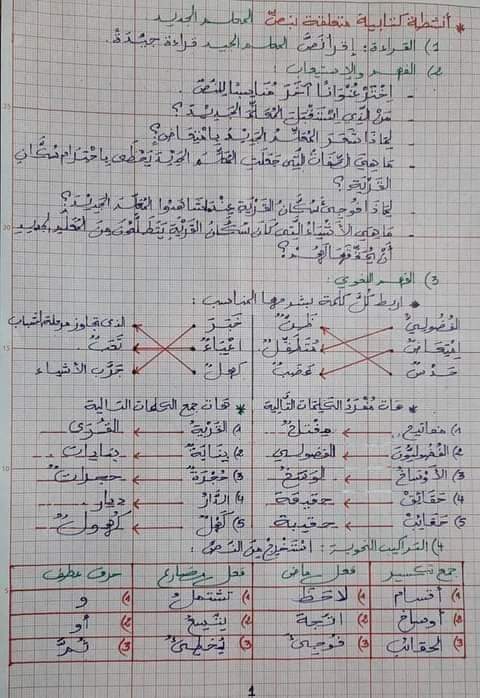 * أنشطة كتابية متعلقة بنص المعلم الجديد
1) القراءة: إقرأ نصَّ المعلم الجديد قراءة جيّدة.
2) الفهم والإستيعاب:
- اِخْتَرْ عُنْوَانًا آخَرَ مُنَاسِبًا لِلنَّصِّ.
- مَنِ الَّذِي اسْتَقْبَلَ الْمُعَلِّمَ الْجَدِيدَ؟
- لِمَاذَا شَعَرَ الْمُعَلِّمُ الْجَدِيدُ بِامْتِعَاضٍ؟
- مَا هِيَ الصِّفَاتُ الَّتِي جَعَلَتِ الْمُعَلِّمَ الْجَدِيدَ يَحْظَى بِاحْتِرَامِ سُكَّانِ
الْقَرْيَةِ؟
- لِمَاذَا فُوجِئَ سُكَّانُ الْقَرْيَةِ عِنْدَمَا شَاهَدُوا الْمُعَلِّمَ الْجَدِيدَ؟
- مَا هِيَ الْأَشْيَاءُ الَّتِي كَانَ سُكَّانُ الْقَرْيَةِ يَتَطَلَّعُونَ مِنَ الْمُعَلِّمِ الْجَدِيدِ
أَنْ يُحَقِّقَهَا لَهُمْ؟
3) الفهم اللغوي:
* اربط كُلَّ كلمة بشرحها المناسب:
الفُضُولِيُّ ظَنٌّ خَبَرَ الذي تجاوز مرحلة الشباب
اِمْتِعَاضٌ مُتَطَفِّلٌ اعْيَاءٌ تَعَبٌ
حَدْسٌ غَضَبٌ كَهْلٌ جَرَّبَ الأشياء
* هات مُفْرَدَ الكلمات التَّالية * هات جمع الكلمات التالية
1) مفاتيح مِفْتَاحٌ 1) القَرْيَةُ القُرَى
2) الفُضُولِيُّونَ الفضولي 2) بِنَايَةٌ بنايات
3) الأَوْسَاخُ الوَسَخُ 3) حُجْرَةٌ حجرات
4) حَقَائِقُ حقيقة 4) الدَّارُ ديار
5) حَقَائِبُ حقيبة 5) كَهْلٌ كُهُولٌ
4) التراكيب النحوية: اسْتَخْرِجْ مِنَ النَّصِّ:
جمع تكسير فعل ماض فعل مضارع حرف عطف
1) أقسام 1) لَاحَظَ 1) تشتمل 1) و
2) أوساخ 2) اتجه 2) 2) أو
3) الحقائب 3) فُوجِئَ 3) يُخطِئُ 3) ثُمَّ
1